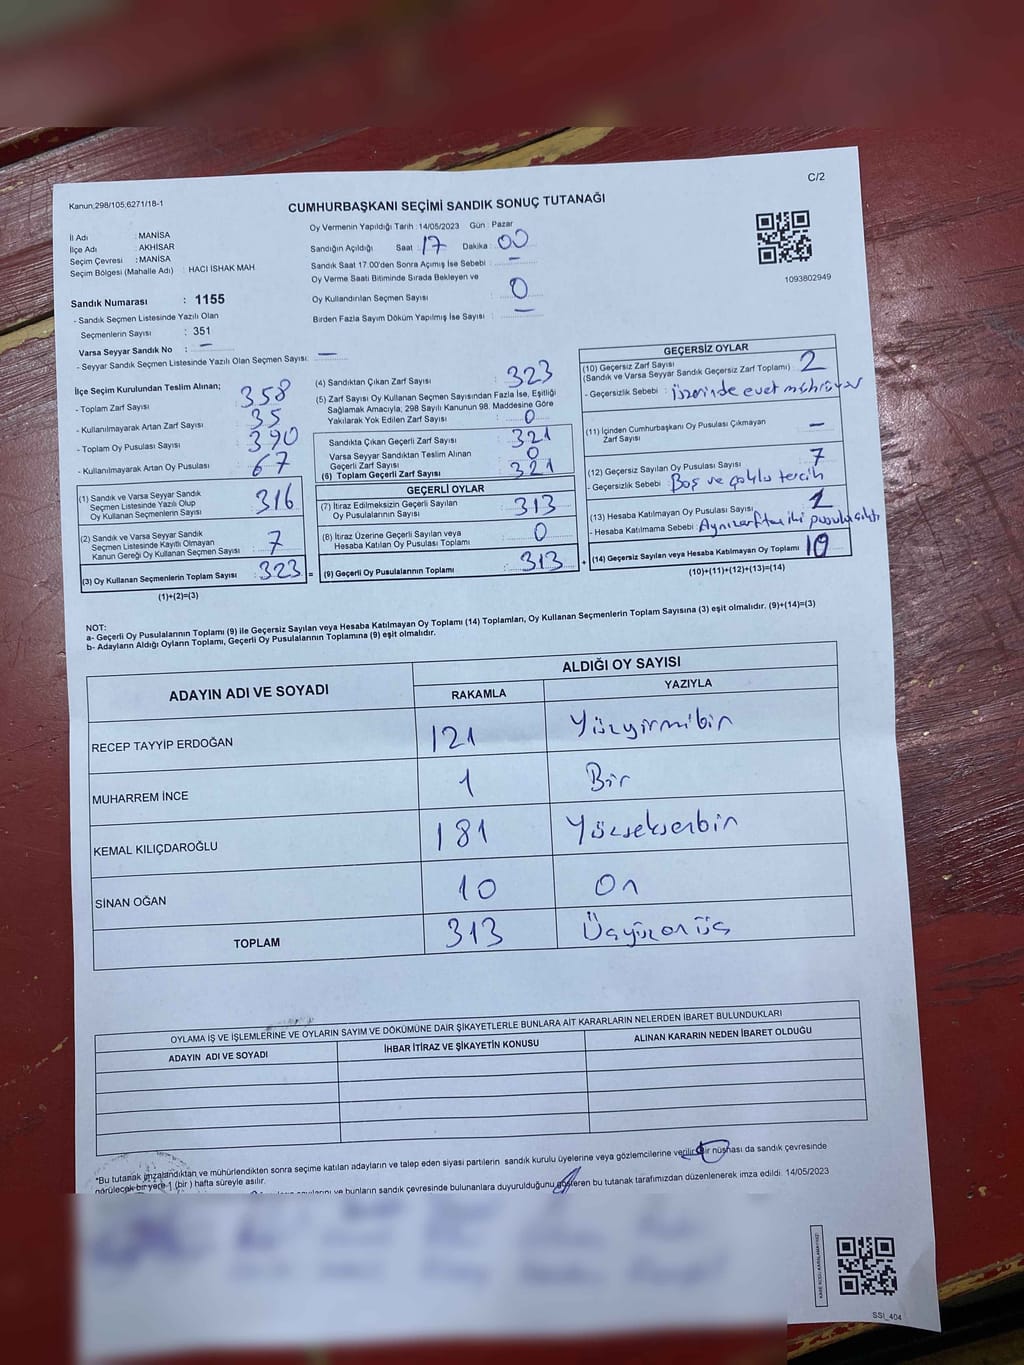 C/2
Kanun,298/105,6271/18-1
CUMHURBAŞKANI SEÇİMİ SANDIK SONUÇ TUTANAĞI
İl Adı : MANİSA
İlçe Adı : AKHİSAR
Seçim Çevresi : MANİSA
Seçim Bölgesi (Mahalle Adı) : HACI İSHAK MAH
Oy Vermenin Yapıldığı Tarih : 14/05/2023 Gün : Pazar
Sandığın Açıldığı Saat : 17 Dakika : 00
Sandık Saat 17.00'den Sonra Açımış İse Sebebi : –
Oy Verme Saati Bitiminde Sırada Bekleyen ve
Oy Kullandırılan Seçmen Sayısı : 0
Birden Fazla Sayım Döküm Yapılmış İse Sayısı : –
1093802949
Sandık Numarası : 1155
- Sandık Seçmen Listesinde Yazılı Olan
Seçmenlerin Sayısı : 351
Varsa Seyyar Sandık No : –
- Seyyar Sandık Seçmen Listesinde Yazılı Olan Seçmen Sayısı: –
İlçe Seçim Kurulundan Teslim Alınan;
- Toplam Zarf Sayısı : 358
- Kullanılmayarak Artan Zarf Sayısı : 35
- Toplam Oy Pusulası Sayısı : 390
- Kullanılmayarak Artan Oy Pusulası : 67
(1) Sandık ve Varsa Seyyar Sandık
Seçmen Listesinde Yazılı Olup
Oy Kullanan Seçmenlerin Sayısı : 316
(2) Sandık ve Varsa Seyyar Sandık
Seçmen Listesinde Kayıtlı Olmayan
Kanun Gereği Oy Kullanan Seçmen Sayısı : 7
(3) Oy Kullanan Seçmenlerin Toplam Sayısı : 323 =
(1)+(2)=(3)
(4) Sandıktan Çıkan Zarf Sayısı : 323
(5) Zarf Sayısı Oy Kullanan Seçmen Sayısından Fazla İse, Eşitliği
Sağlamak Amacıyla, 298 Sayılı Kanunun 98. Maddesine Göre
Yakılarak Yok Edilen Zarf Sayısı : 0
Sandıkta Çıkan Geçerli Zarf Sayısı : 321
Varsa Seyyar Sandıktan Teslim Alınan
Geçerli Zarf Sayısı : 0
(6) Toplam Geçerli Zarf Sayısı : 321
GEÇERLİ OYLAR
(7) İtiraz Edilmeksizin Geçerli Sayılan
Oy Pusulalarının Sayısı : 313
(8) İtiraz Üzerine Geçerli Sayılan veya
Hesaba Katılan Oy Pusulası Toplamı : 0
(9) Geçerli Oy Pusulalarının Toplamı : 313 +
GEÇERSİZ OYLAR
(10) Geçersiz Zarf Sayısı
(Sandık ve Varsa Seyyar Sandık Geçersiz Zarf Toplamı) : 2
- Geçersizlik Sebebi : üzerinde evet mührü var
(11) İçinden Cumhurbaşkanı Oy Pusulası Çıkmayan
Zarf Sayısı : –
(12) Geçersiz Sayılan Oy Pusulası Sayısı : 7
- Geçersizlik Sebebi : Boş ve çoklu tercih
(13) Hesaba Katılmayan Oy Pusulası Sayısı : 1
- Hesaba Katılmama Sebebi : Aynı zarftan iki pusula çıktı
(14) Geçersiz Sayılan veya Hesaba Katılmayan Oy Toplamı : 10
(10)+(11)+(12)+(13)=(14)
NOT:
a- Geçerli Oy Pusulalarının Toplamı (9) ile Geçersiz Sayılan veya Hesaba Katılmayan Oy Toplamı (14) Toplamları, Oy Kullanan Seçmenlerin Toplam Sayısına (3) eşit olmalıdır. (9)+(14)=(3)
b- Adayların Aldığı Oyların Toplamı, Geçerli Oy Pusulalarının Toplamına (9) eşit olmalıdır.
ADAYIN ADI VE SOYADI ALDIĞI OY SAYISI
RAKAMLA YAZIYLA
RECEP TAYYİP ERDOĞAN 121 Yüzyirmibir
MUHARREM İNCE 1 Bir
KEMAL KILIÇDAROĞLU 181 Yüzseksenbir
SİNAN OĞAN 10 On
TOPLAM 313 Üçyüzonüç
OYLAMA İŞ VE İŞLEMLERİNE VE OYLARIN SAYIM VE DÖKÜMÜNE DAİR ŞİKAYETLERLE BUNLARA AİT KARARLARIN NELERDEN İBARET BULUNDUKLARI
ADAYIN ADI VE SOYADI İHBAR İTİRAZ VE ŞİKAYETİN KONUSU ALINAN KARARIN NEDEN İBARET OLDUĞU
*Bu tutanak imzalandıktan ve mühürlendikten sonra seçime katılan adayların ve talep eden siyasi partilerin sandık kurulu üyelerine veya gözlemcilerine verilir bir nüshası da sandık çevresinde
görülecek bir yere 1 (bir ) hafta süreyle asılır.
ve bunların sandık çevresinde bulunanlara duyurulduğunu gösteren bu tutanak tarafımızdan düzenlenerek imza edildi. 14/05/2023
SSI_404